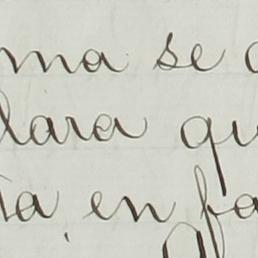 ma se
lara qu
ta en fa